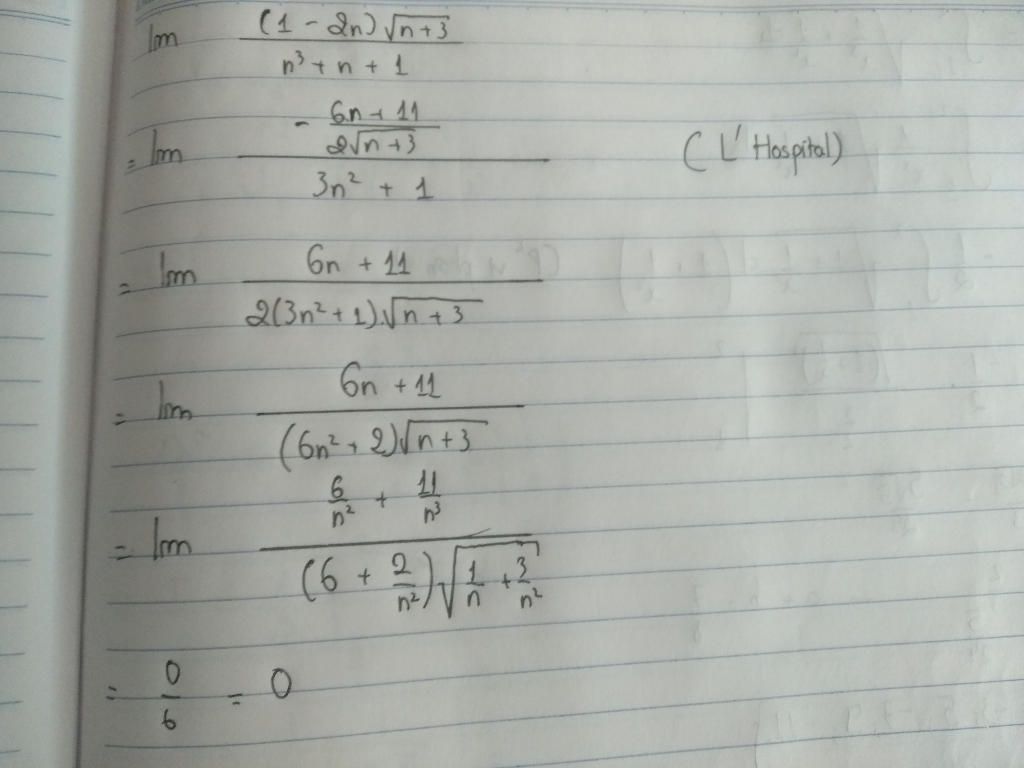 lim (1 - 2n)√(n+3) / (n³ + n + 1)
= lim (- (6n + 11)/(2√(n+3))) / (3n² + 1) (L' Hospital)
= lim (6n + 11) / (2(3n² + 1)√(n + 3))
= lim (6n + 11) / ((6n² + 2)√(n + 3))
= lim (6/n² + 11/n³) / ((6 + 2/n²)√(1/n + 3/n²))
= 0/6 = 0